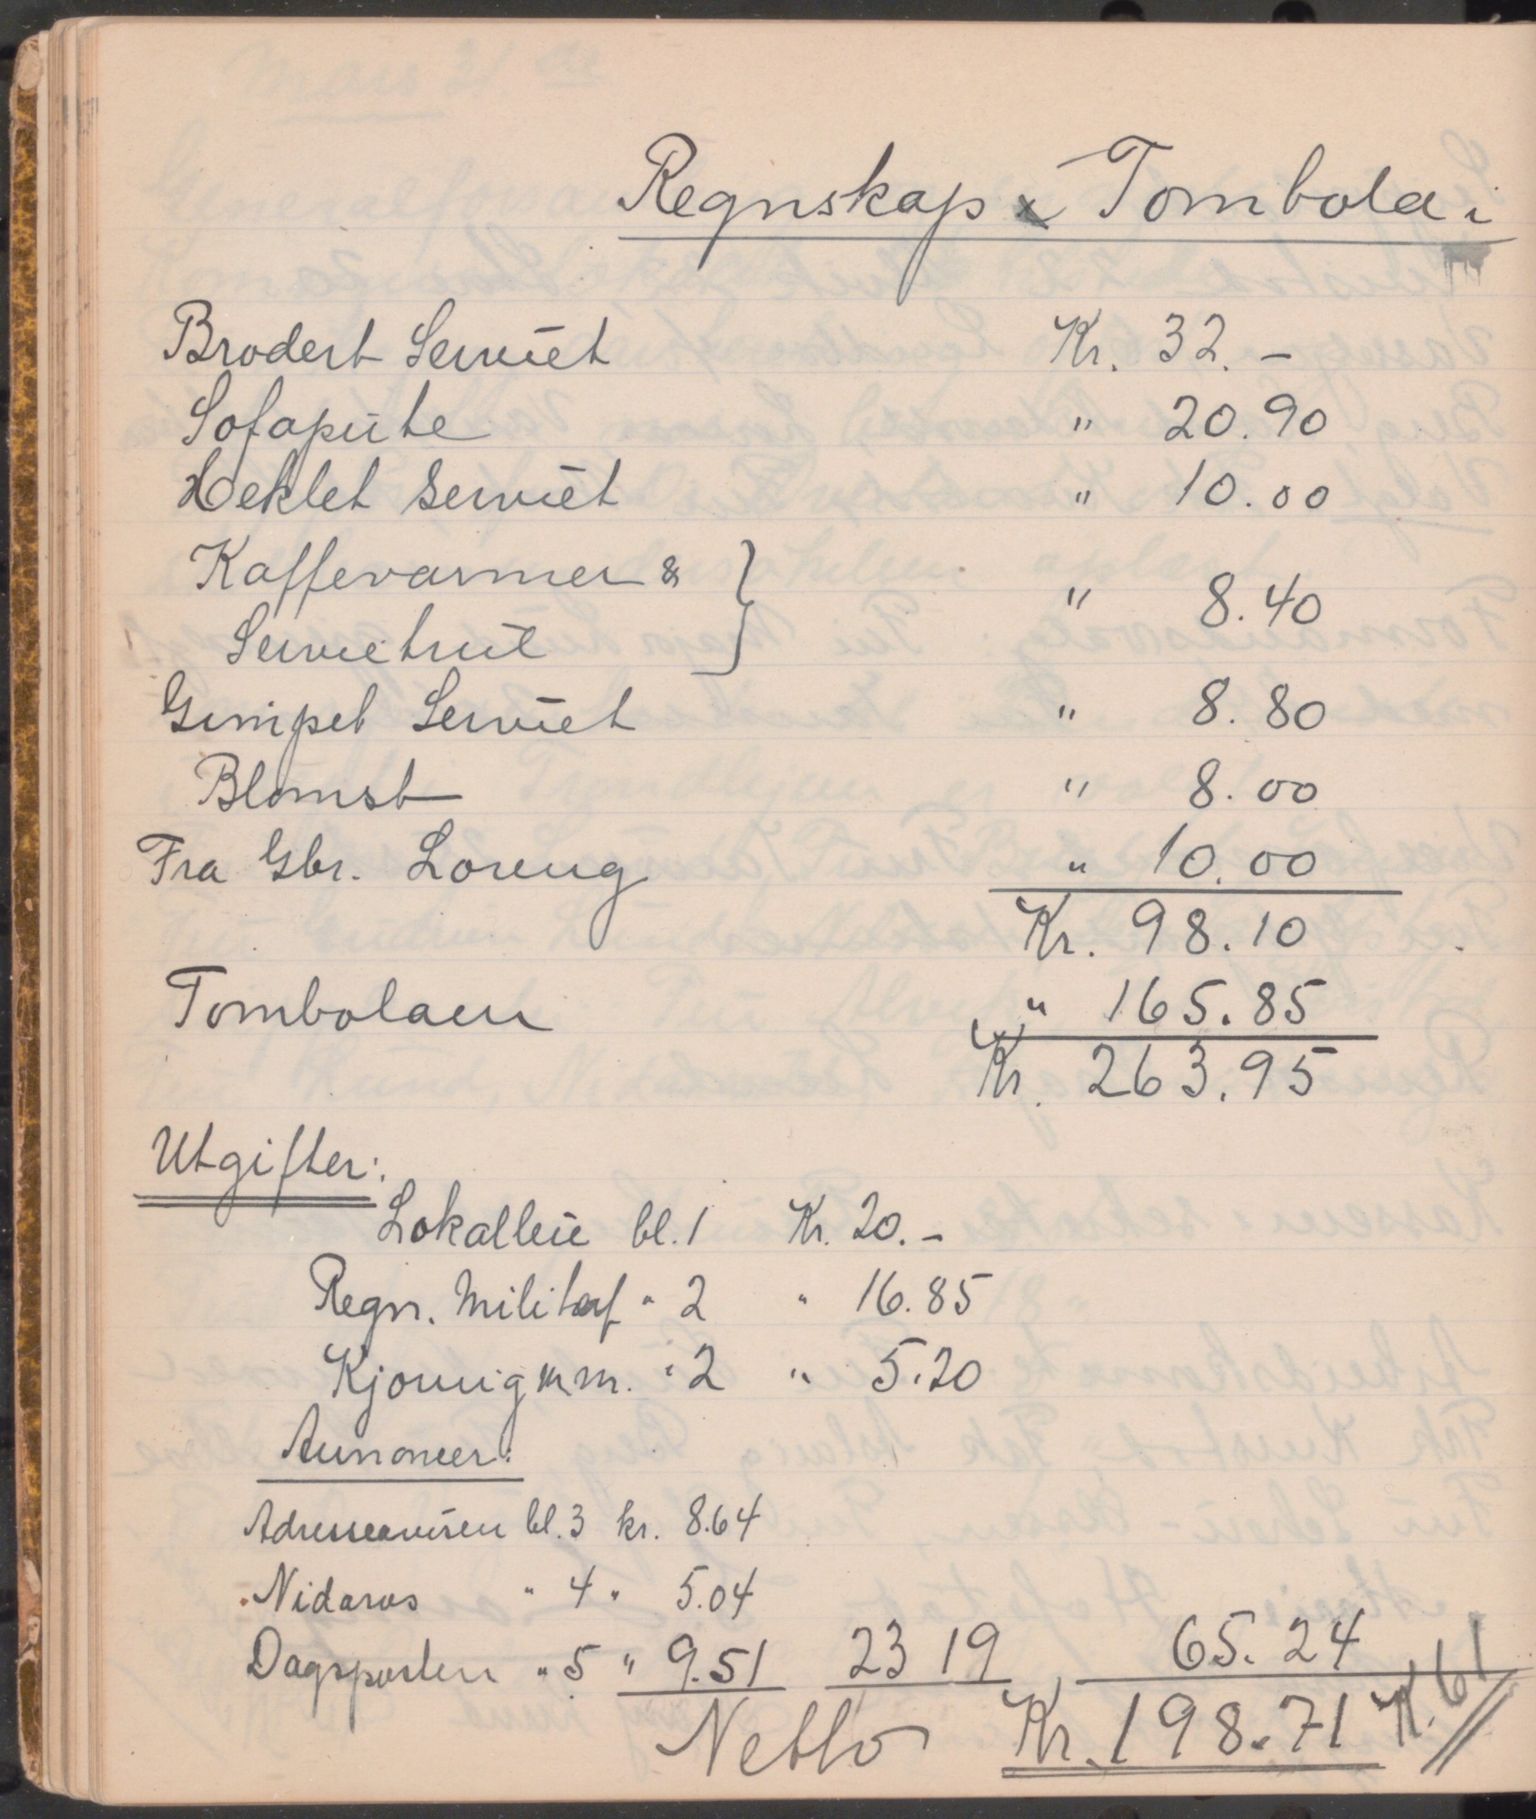 Regnskap x Tombola i
Brodert Serviet Kr. 32.–
Sofapute " 20.90
Heklet Serviet " 10.00
Kaffevarmer & } " 8.40
Servietruil
Gimpet Serviet " 8.80
Blomst " 8.00
Fra Gbr. Loreng " 10.00
Kr. 98.10
Tombolaen " 165.85
Kr. 263.95
Utgifter:
Lokalleie bl. 1 Kr. 20.–
Regn. Militærf " 2 " 16.85
Kjøring m.m. " 2 " 5.20
Annoncer:
Adresseavisen bl. 3 kr. 8.64
Nidaros " 4 " 5.04
Dagsposten " 5 " 9.51 23 19 65.24
Netto Kr. 198.71 K. 61